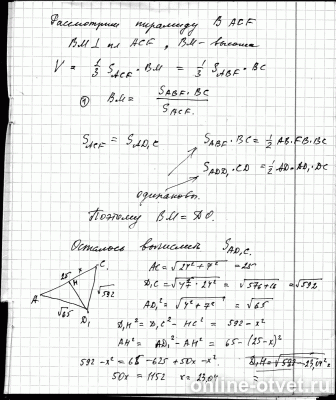 Рассмотрим пирамиду BACF
BM ⊥ пл ACF, BM – высота
V = 1/3 S_ACF · BM = 1/3 S_ABF · BC
① BM = S_ABF · BC / S_ACF
S_ACF = S_AD₁C
S_ABF · BC = 1/2 AB · FB · BC
S_ADD₁ · CD = 1/2 AD · DD₁ · DC
одинаковы
Поэтому BM = DO.
Осталось вычислить S_AD₁C.
AC = √24² + 7² = 25
D₁C = √4² · 24² = √576+16 = √592
AD₁² = √4² + 7² = √65
D₁H² = D₁C² − HC² = 592 − x²
AH² = AD₁² − AH² = 65 − (25 − x)²
592 − x² = 65 − 625 + 50x − x²
50x = 1152 x = 23,04
D₁H = √592 − 23,04²
=
C
25
x
H
√592
A
√65
D₁
online-otvet.ru